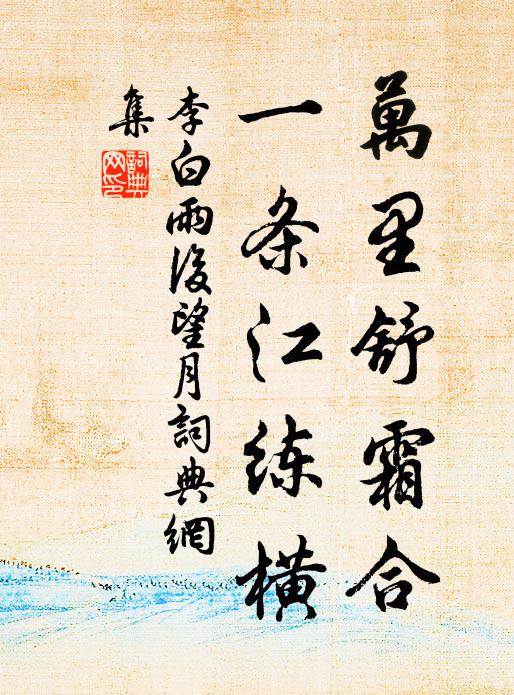 萬里舒霜合
一条江练横
李白雨後望月詞典網
集
詞典网印